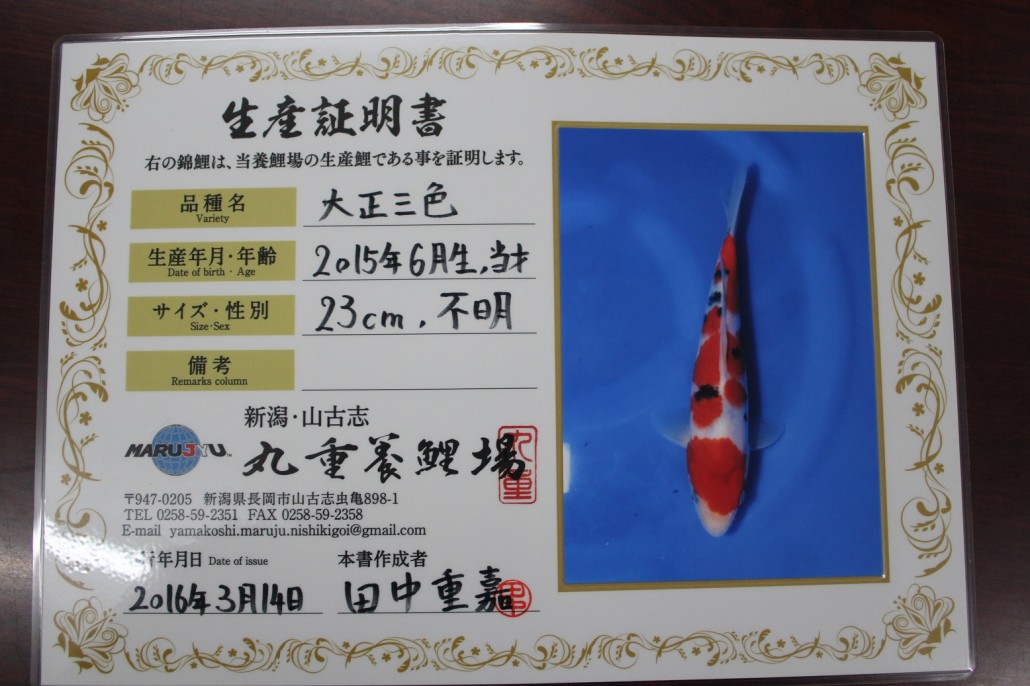 生産証明書
右の錦鯉は、当養鯉場の生産鯉である事を証明します。
品種名
Variety
大正三色
生産年月・年齢
Date of birth · Age
2015年6月生,当才
サイズ・性別
Size·Sex
23cm, 不明
備考
Remarks column
新潟・山古志
MARUJYU™
丸重養鯉場
丸重
〒947-0205 新潟県長岡市山古志虫亀898-1
TEL 0258-59-2351 FAX 0258-59-2358
E-mail yamakoshi.maruju.nishikigoi@gmail.com
行年月日 Date of issue
本書作成者
2016年3月14日
田中重嘉